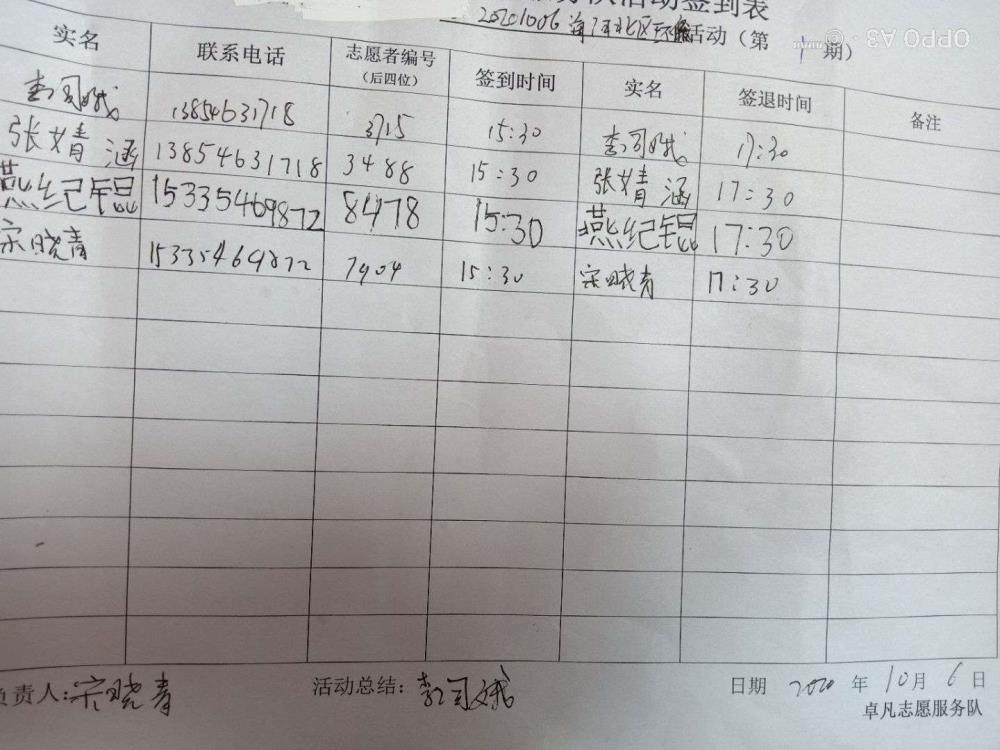 活动签到表
20201006 海河北区环 活动（第 1 期）
实名 联系电话 志愿者编号（后四位） 签到时间 实名 签退时间 备注
李司娥 13854631718 3715 15:30 李司娥 17:30
张婧涵 13854631718 3488 15:30 张婧涵 17:30
燕纪锟 15335469872 8478 15:30 燕纪锟 17:30
宋晓青 15335469872 7904 15:30 宋晓青 17:30
负责人:宋晓青 活动总结：李司娥 日期 2020 年 10 月 6 日
卓凡志愿服务队
OPPO A3